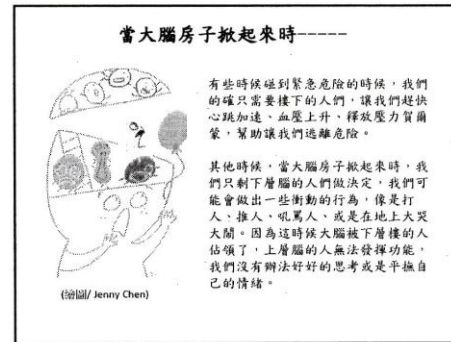 當大腦房子掀起來時-----
有些時候碰到緊急危險的時候，我們
的確只需要樓下的人們，讓我們趕快
心跳加速、血壓上升、釋放壓力賀爾
蒙，幫助讓我們逃離危險。
其他時候，當大腦房子掀起來時，我
們只剩下層腦的人們做決定，我們可
能會做出一些衝動的行為，像是打
人、推人、吼罵人、或是在地上大哭
大鬧。因為這時候大腦被下層樓的人
佔領了，上層腦的人無法發揮功能，
我們沒有辦法好好的思考或是平撫自
己的情緒。
(繪圖/ Jenny Chen)